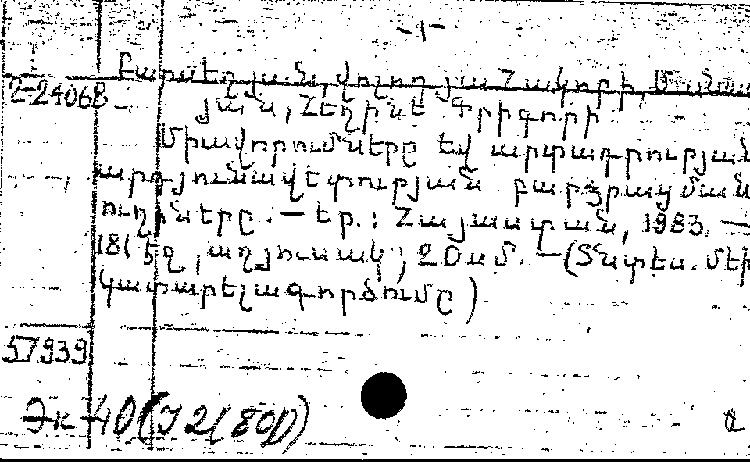 -1-
Բարսեղյան, Վոլոդյա Հակոբի, Մանաս
2-24068
յան, Հեղինե Գրիգորի
Միավորումները եվ արտադրության
արդյունավետության բարձրացման
ուղիները. — Եր.: Հայաստան, 1983. —
181 էջ, աղյուսակ; 20 սմ. — (Տնտես. մեխ
կատարելագործումը)
57939
Эк 40 (У2(80)